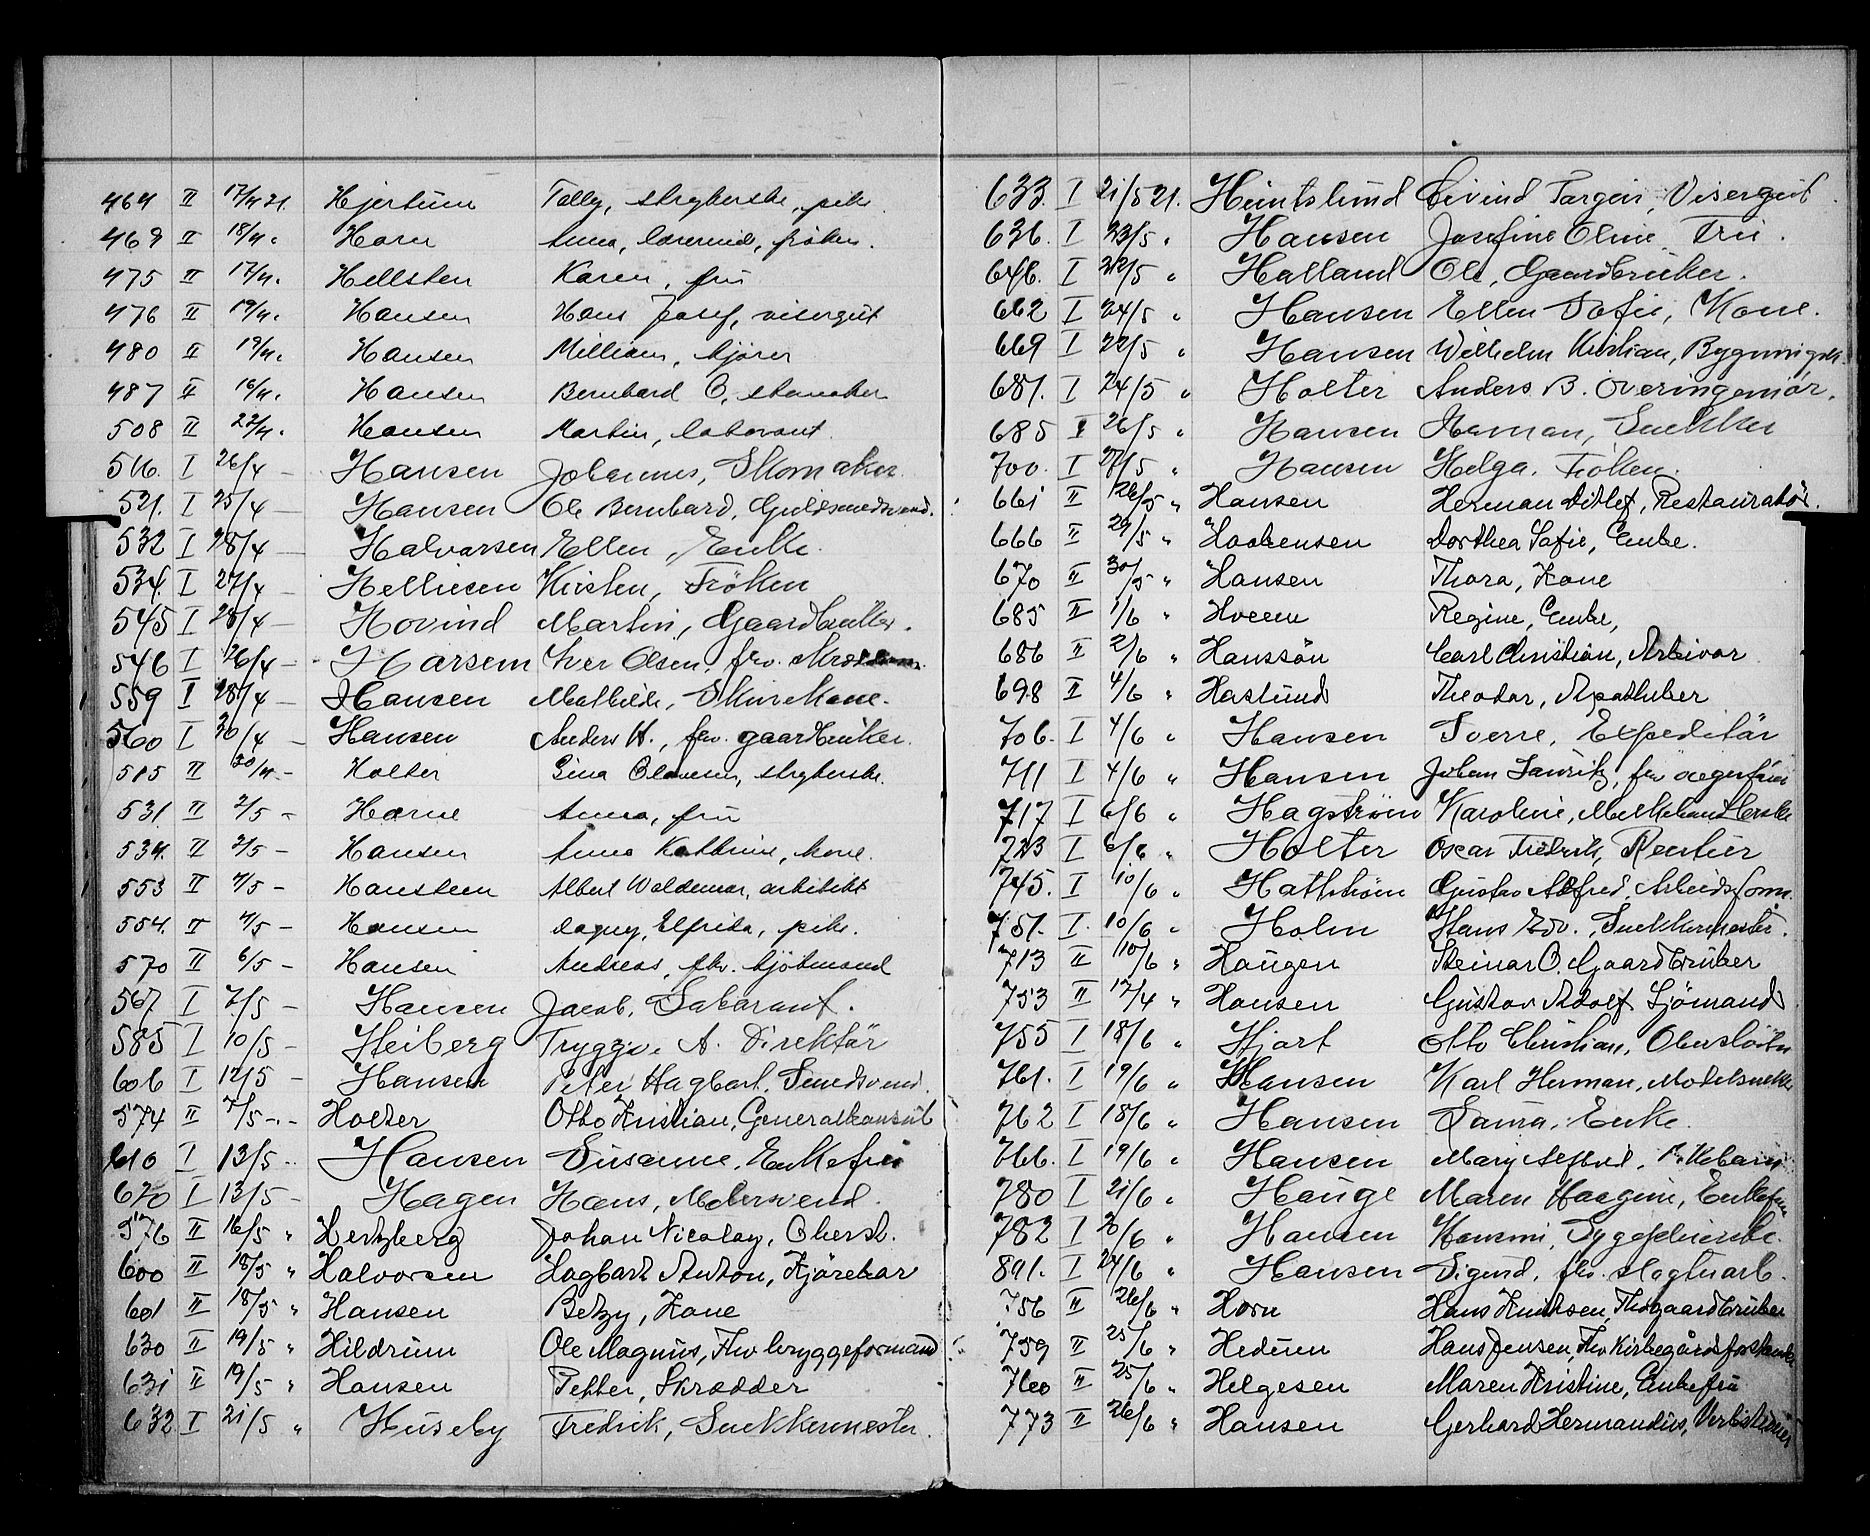 464 II 17/4 21. Hjertum Tolly, strykerske, pike.
469 II 18/4 " Horn Anna, lærerinde, frøken.
475 II 17/4 " Hellsten Karen, fru
476 II 19/4 " Hansen Hans Josef, visergut
480 II 19/4 " Hansen William, kjører
487 II 16/4 " Hansen Bernhard O,
508 II 22/4 " Hansen Martin, laborant.
516. I 26/4 — Hansen Johannes, Skomaker
521. I 25/4 — Hansen Ole Bernhard, Guldsmedsvend.
532 I 28/4 — Halvorsen Ellen, Enke.
534. I 27/4 — Helliesen Kirsten, Fröken
545 I 28/4 — Hovind Martin, Gaardbruker.
546 I 26/4 — Harsem Iver Olsen, fhv.
559 I 28/4 — Hansen Mathilde, Skurekone.
560 I 30/4 — Hansen Anders H., fhv. gaardbruker.
515 II 30/4 — Holter Gina Olavesen, strykerske.
531 II 2/5 — Horne Anna, fru
534. II 2/5 — Hansen Anna Kathrine, kone.
553 II 4/5 — Hansteen Albert Waldemar, arkitekt
554. II 4/5 — Hansen Dagny, Elfrida, pike.
570 II 6/5 — Hansen Andreas, fhv. kjöbmand
567 I 7/5 — Hansen Jacob, Laborant.
585 I 10/5 — Heiberg Tryggve A. Direktör
606 I 12/5 — Hansen Peter Hagbart, Smedsvend.
574 II 7/5 — Holter Otto Kristian, Generalkonsul
610 I 13/5 — Hansen Susanne, Enkefru
670 I 13/5 — Hagen Hans, Malersvend.
576 II 16/5 " Hertzberg Johan Nicolay, Oberst.
600 II 18/5 " Halvorsen Hagbart Anton, Kjörekar
601 II 18/5 " Hansen Betzy, Kone
630 II 19/5 " Hildrum Ole Magnus, Fhv bryggeformand
631 II 19/5 " Hansen Petter, Skrædder
632 I 21/5 " Huseby Fredrik, Snekkermester.
633. I 21/5 21. Huntslund Eivind Torgeir, Visergut
636. I 23/5 " Hansen Josefine Oline. Fru.
646. I 22/5 " Halland Ole, Gaardbruker.
662 I 24/5 " Hansen Ellen Sofie, Kone.
669 I 22/5 " Hansen Wilhelm Kristian,
681. I 24/5 " Holter Anders B. Overingeniør.
685 I 26/5 " Hansen Herman, Snekker
700. I 27/5 " Hansen Helga. Fröken.
661 II 26/5 " Hansen Herman Ditlef, Restauratör.
666 II 29/5 " Haakensen Dorthea Sofie, Enke.
670 II 30/5 " Hansen Thora, Kone
685 II 1/6 " Hveem Regine, Enke,
686 II 2/6 " Hanssön Carl Christian, Arkivar
698 II 4/6 " Haslund Theodor, Apotheker
706. I 4/6 " Hansen Sverre, Expeditör
711 I 4/6 " Hansen Johan Lauritz, fhv
717 I 6/6 " Hagström Karoline, Melkehandlerske
723 I 6/6 " Holter Oscar Fredrik, Rentier
745. I 10/6 " Hathström Gustav Alfred, Arbeidsform.
751. I. 10/6 " Holm Hans Edv., Snekkermester.
713 II 10/6 " Haugen Steinar O. Gaardbruker
753 II 12/4 " Hansen Gustav Adolf, Sjömand
755 I 18/6 " Hjort Otto Christian, Oberstlöitn
761. I 19/6 " Hansen Karl Herman, Modelsnekker
762 I 18/6 " Hansen Laura, Enke.
766. I 19/6 " Hansen Mary
780 I 21/6 " Hauge Maren Haagine, Enkefru
782 I 20/6 " Hansen Hansine, Sygepleierske.
891. I 24/6 " Hansen Sigurd, fhv. slagteriarb.
756 II 26/6 " Horn Hans Knutsen, Fhv gaardbruker
759 II 25/6 " Hedum Hans Jensen, Fhv Kirkegårdsforstander
760 II 25/6 " Helgesen Maren Kristine, Enkefru
773 II 26/6 " Hansen Gerhard Hermandius, Verkstseier